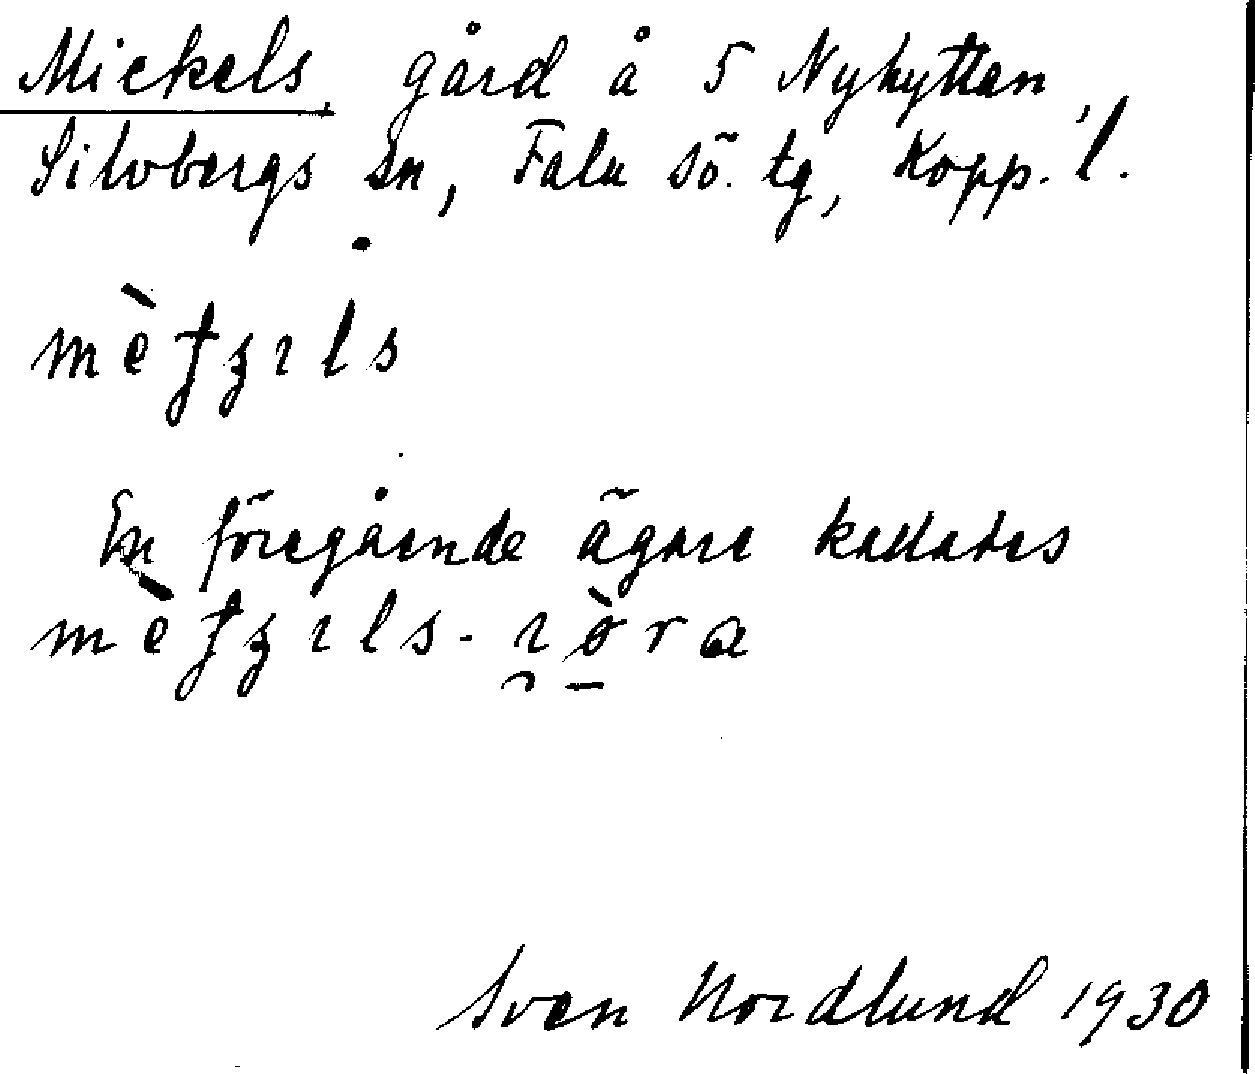 Mickels, gård å 5 Nyhyttan,
Silvbergs sn, Falu sö. tg, Kopp. l.
mèʈʒɪls
En föregående ägare kallades
mèʈʒɪls-ɪ̯ò̱ra
Sven Nordlund 1930